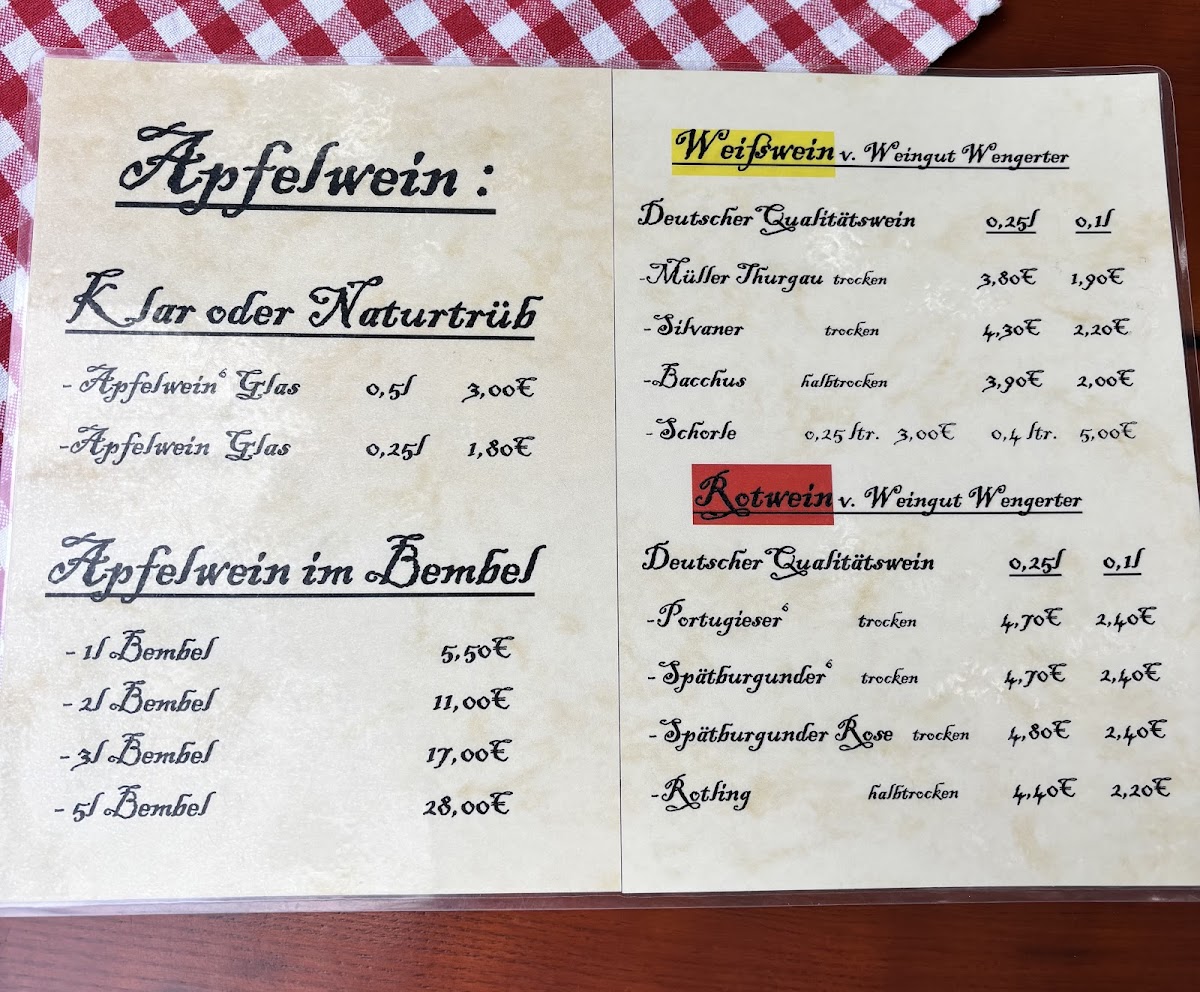 Apfelwein :
Klar oder Naturtrüb
- Apfelwein⁶ Glas 0,5l 3,00€
-Apfelwein Glas 0,25l 1,80€
Apfelwein im Bembel
- 1l Bembel 5,50€
- 2l Bembel 11,00€
- 3l Bembel 17,00€
- 5l Bembel 28,00€
Weißwein v. Weingut Wengerter
Deutscher Qualitätswein 0,25l 0,1l
-Müller Thurgau trocken 3,80€ 1,90€
-Silvaner trocken 4,30€ 2,20€
-Bacchus halbtrocken 3,90€ 2,00€
-Schorle 0,25 ltr. 3,00€ 0,4 ltr. 5,00€
Rotwein v. Weingut Wengerter
Deutscher Qualitätswein 0,25l 0,1l
-Portugieser⁶ trocken 4,70€ 2,40€
- Spätburgunder⁶ trocken 4,70€ 2,40€
- Spätburgunder Rose trocken 4,80€ 2,40€
-Rotling halbtrocken 4,40€ 2,20€